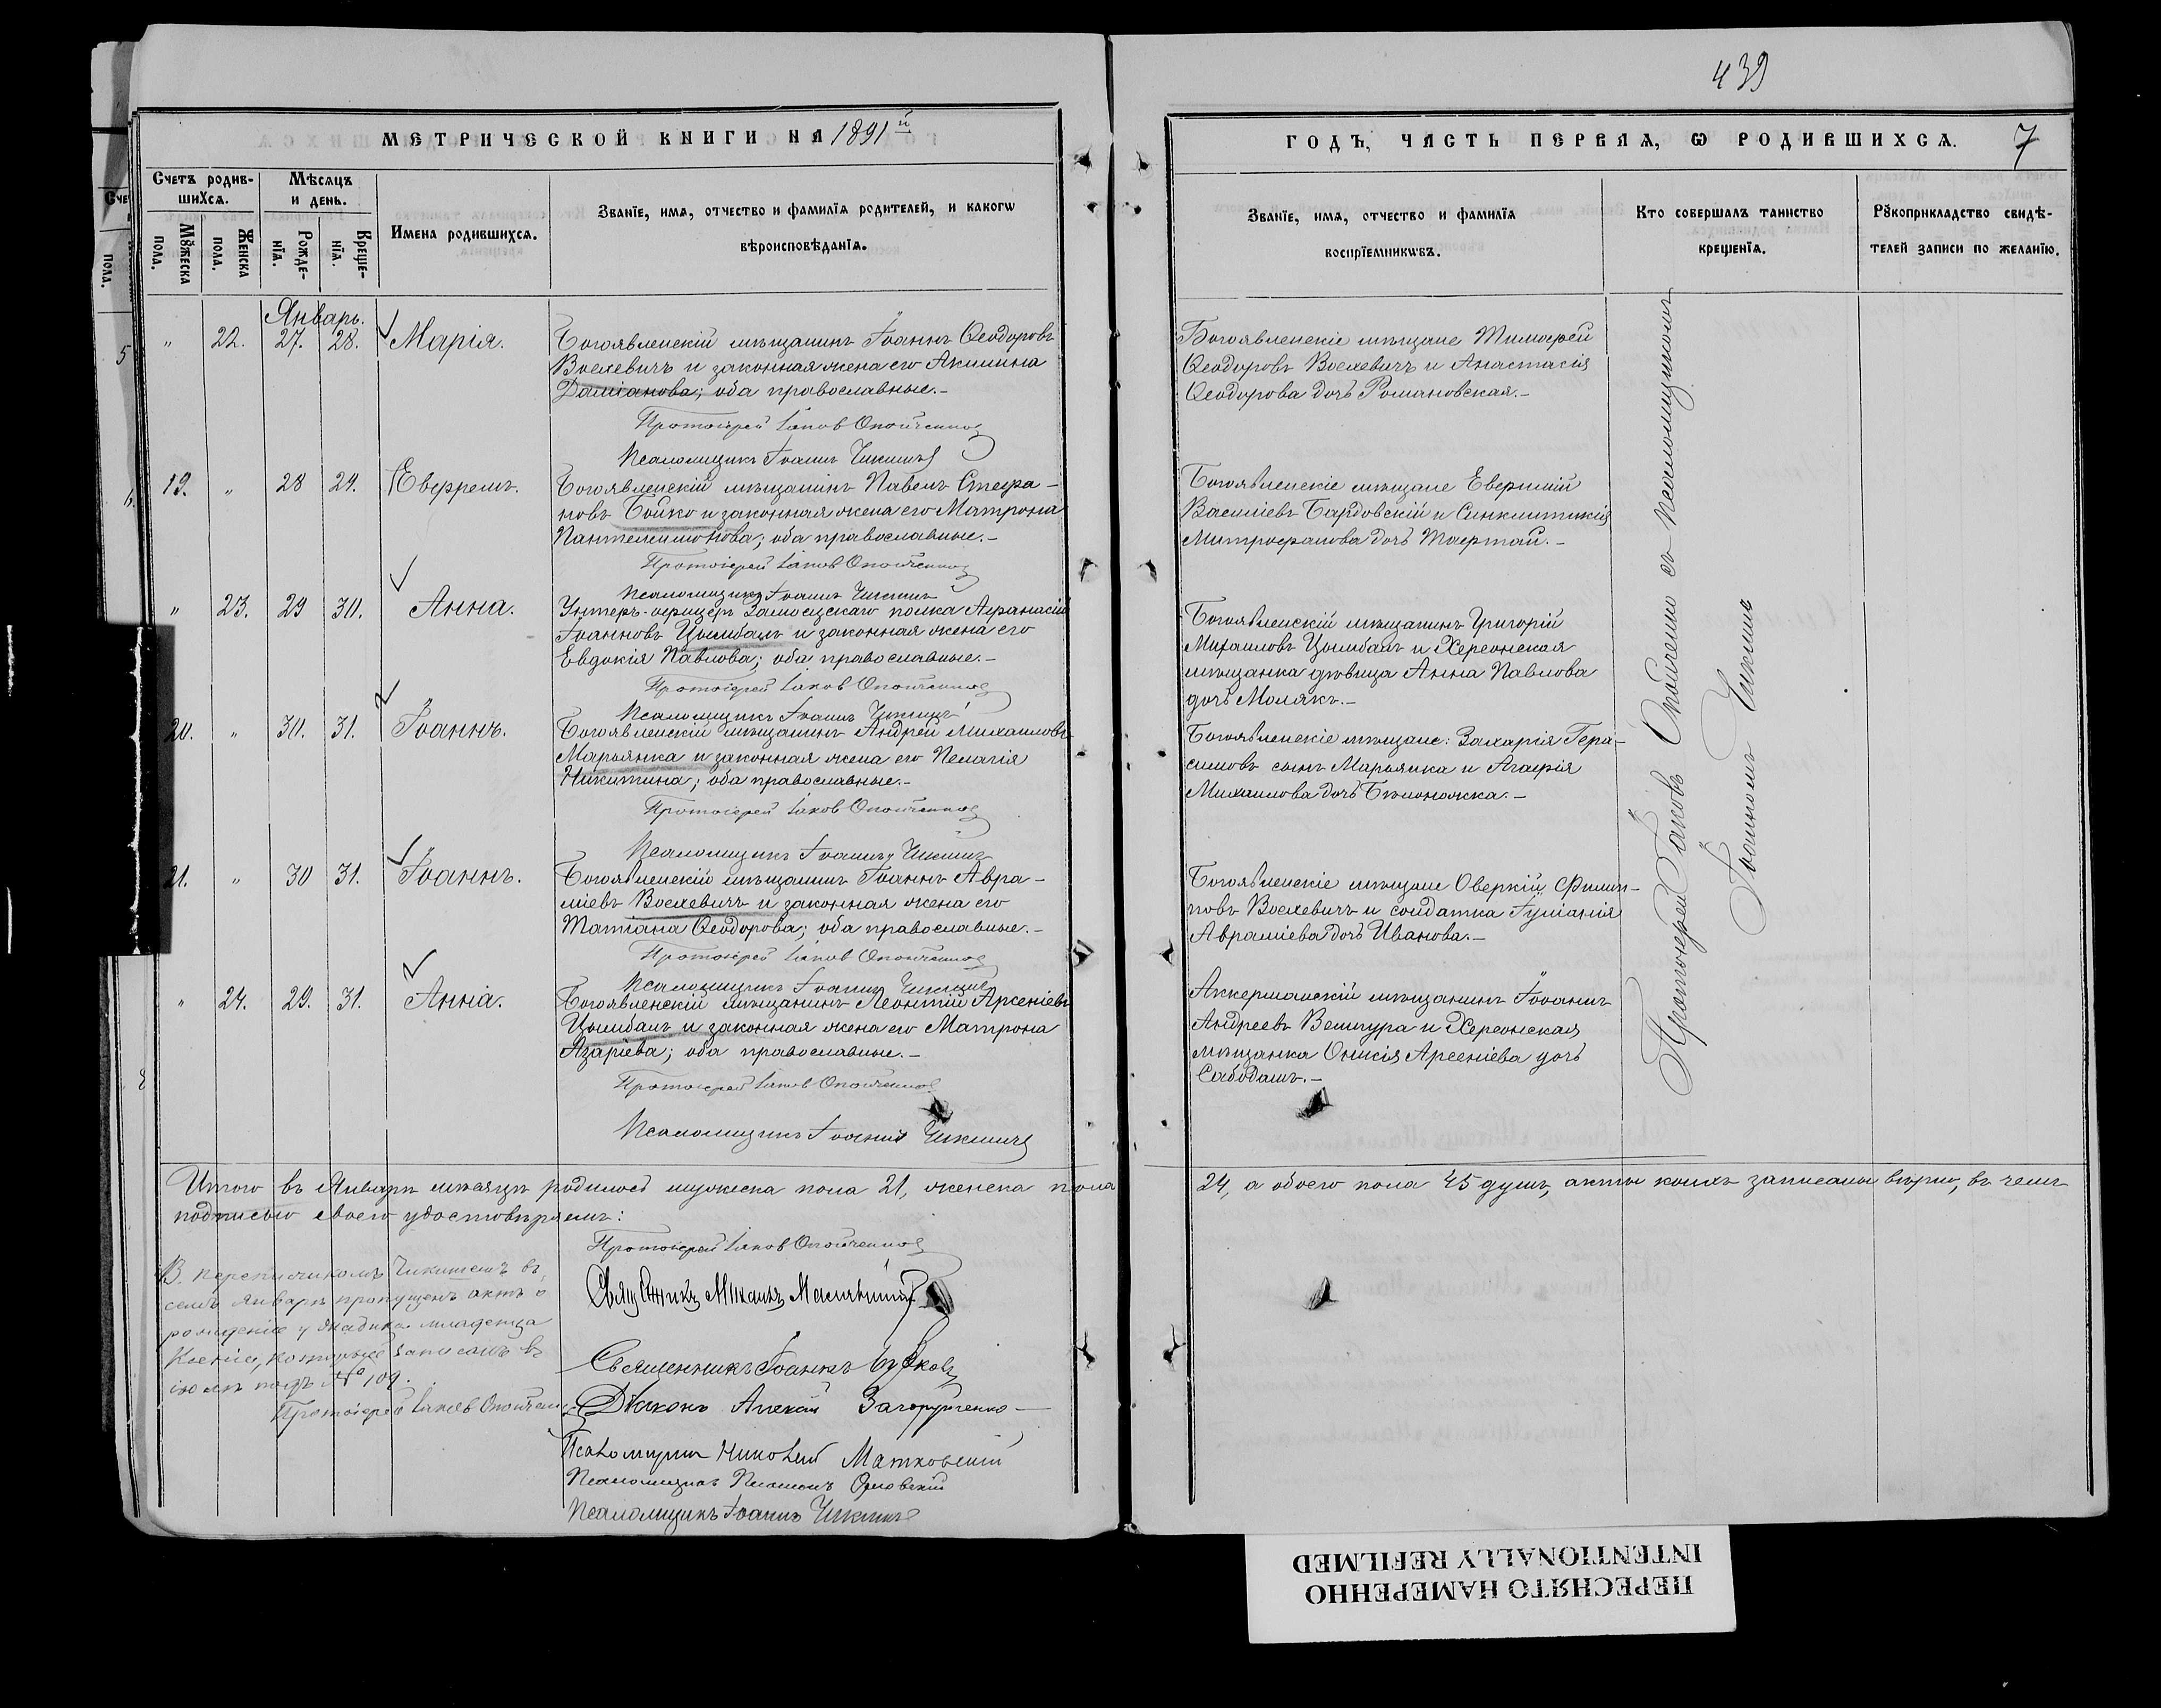 439
МЕТРИЧЕСКОЙ КНИГИ НА 1891й
ГОДЪ, ЧАСТЬ ПЕРВАЯ, Ѡ РОДИВШИХСѦ. 7
Счетъ родив-
шихсѧ.
Мѣсѧцъ
и день.
Мꙋжеска
пола.
Женска
пола.
Рожде-
нїѧ.
Креще-
нїѧ.
Имена родившихсѧ.
Званїе, имѧ, отчество и фамилїѧ родителей, и какогѡ
вѣроисповѣданїѧ.
Званїе, имѧ, отчество и фамилїѧ
воспрїемникѡвъ.
Кто совершалъ таинство
крещенїѧ.
Рꙋкоприкладство свидѣ-
телей записи по желанїю.
Январь.
" 22. 27. 28. Марія.
Богоявленскій мѣщанинъ Іоаннъ Ѳеодоровъ
Воскевичъ и законная жена его Акилина
Даміанова; оба православные.-
Протоіерей Іаковъ
Псаломщикъ Іоаннъ
Богоявленскіе мѣщане Тимофей
Ѳеодоровъ Воскевичъ и Анастасія
Ѳеодорова дочь Романовская.-
19. " 28 29. Ефремъ.
Богоявленскій мѣщанинъ Павелъ Стефа-
новъ Бойко и законная жена его Матрона
Пантелеимонова; оба православные.-
Протоіерей Іаковъ
Псаломщикъ Іоаннъ
Богоявленскіе мѣщане Евфимій
Василіевъ Бардовскій и Синклитикія
Митрофанова дочь Тафтай.-
" 23. 29 30. Анна.
Унтеръ-офицеръ Замосцскаго полка Афанасій
Іоанновъ Цымбалъ и законная жена его
Евдокія Павлова; оба православные.-
Протоіерей Іаковъ
Псаломщикъ Іоаннъ
Богоявленскій мѣщанинъ Григорій
Михаиловъ Цымбалъ и Херсонская
мѣщанка дѣвица Анна Павлова
дочь Молякъ.-
20. " 30. 31. Іоаннъ.
Богоявленскій мѣщанинъ Андрей Михаиловъ
Марьянка и законная жена его Пелагія
Никитина; оба православные.-
Протоіерей Іаковъ
Псаломщикъ Іоаннъ
Богоявленскіе мѣщане: Захарія Гера-
симовъ сынъ Марьянка и Агафія
Михаилова дочь Бѣлоножка.-
21. " 30 31. Іоаннъ.
Богоявленскій мѣщанинъ Іоаннъ Авра-
міевъ Воскевичъ и законная жена его
Татіана Ѳеодорова; оба православные.-
Протоіерей Іаковъ
Псаломщикъ Іоаннъ
Богоявленскіе мѣщане Оверкій Филип-
повъ Воскевичъ и солдатка Іуліанія
Авраміева дочь Иванова.-
" 24. 29. 31. Анна.
Богоявленскій мѣщанинъ Леонтій Арсеніевъ
Цымбалъ и законная жена его Матрона
Азаріева; оба православные.-
Протоіерей Іаковъ
Псаломщикъ Іоаннъ
Аккерманскій мѣщанинъ Іоаннъ
Андреевъ Венгура и Херсонская
мѣщанка Онисія Арсеніева дочь
Сабодашъ.-
Протоіерей Іаковъ съ псаломщикомъ
Іоанномъ
Итого въ Январѣ мѣсяцѣ родилось мужеска пола 21, женска пола
24, а обоего пола 45 душъ, акты коихъ записаны вѣрно, въ чемъ
подписью своею удостовѣряемъ:
Протоіерей Іаковъ
Священникъ Михаилъ
Священникъ Іоаннъ
Діаконъ Алексій Загоруйченко
Псаломщикъ Николай Матковскій
Псаломщикъ Орловскій
Псаломщикъ Іоаннъ
семъ Январѣ пропущенъ актъ о
рожденіи младенца
Ксеніи, который записанъ въ
іюлѣ подъ № 109.
Протоіерей Іаковъ
ПЕРЕСНЯТО НАМЕРЕННО
INTENTIONALLY REFILMED